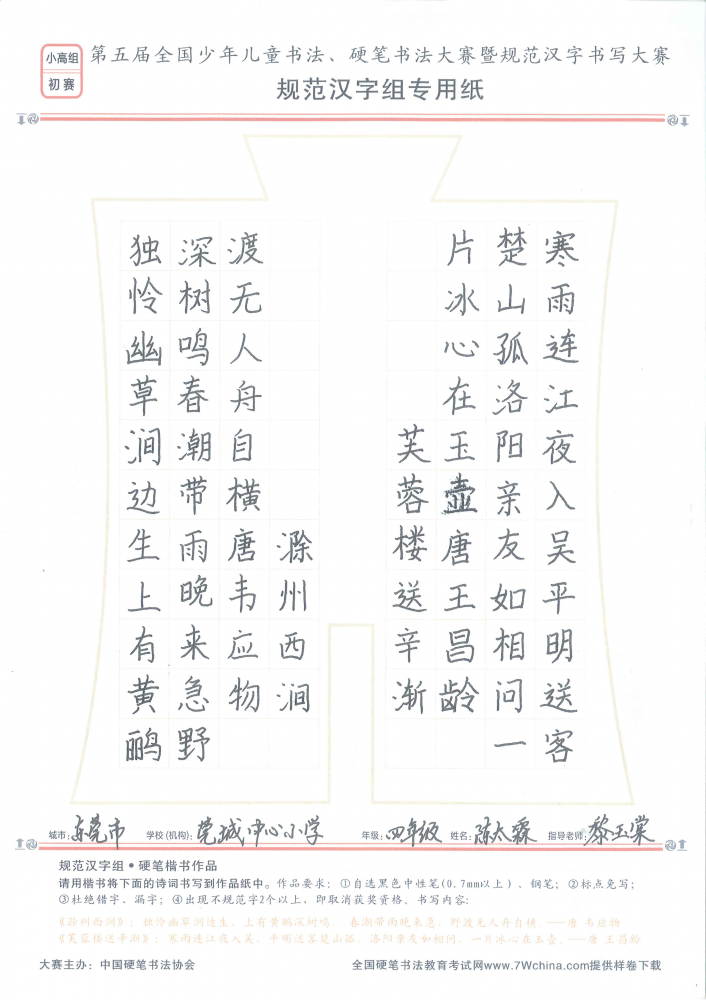 小高组
初赛
第五届全国少年儿童书法、硬笔书法大赛暨规范汉字书写大赛
规范汉字组专用纸
独怜幽草涧边生上有黄鹂
深树鸣春潮带雨晚来急野
渡无人舟自横唐韦应物
滁州西涧
寒雨连江夜入吴平明送客
楚山孤洛阳亲友如相问一
片冰心在玉壶唐王昌龄
芙蓉楼送辛渐
城市：东莞市 学校(机构)：莞城中心小学 年级：四年级 姓名：陈太霖 指导老师：黎玉棠
规范汉字组•硬笔楷书作品
请用楷书将下面的诗词书写到作品纸中。作品要求：①自选黑色中性笔(0.7mm以上)、钢笔；②标点免写；
③杜绝错字，漏字；④出现不规范字2个以上，即取消获奖资格。书写内容：
《滁州西涧》：独怜幽草涧边生，上有黄鹂深树鸣。春潮带雨晚来急，野渡无人舟自横。——唐 韦应物
《芙蓉楼送辛渐》：寒雨连江夜入吴，平明送客楚山孤。洛阳亲友如相问，一片冰心在玉壶。——唐 王昌龄
大赛主办：中国硬笔书法协会 全国硬笔书法教育考试网www.7Wchina.com提供样卷下载